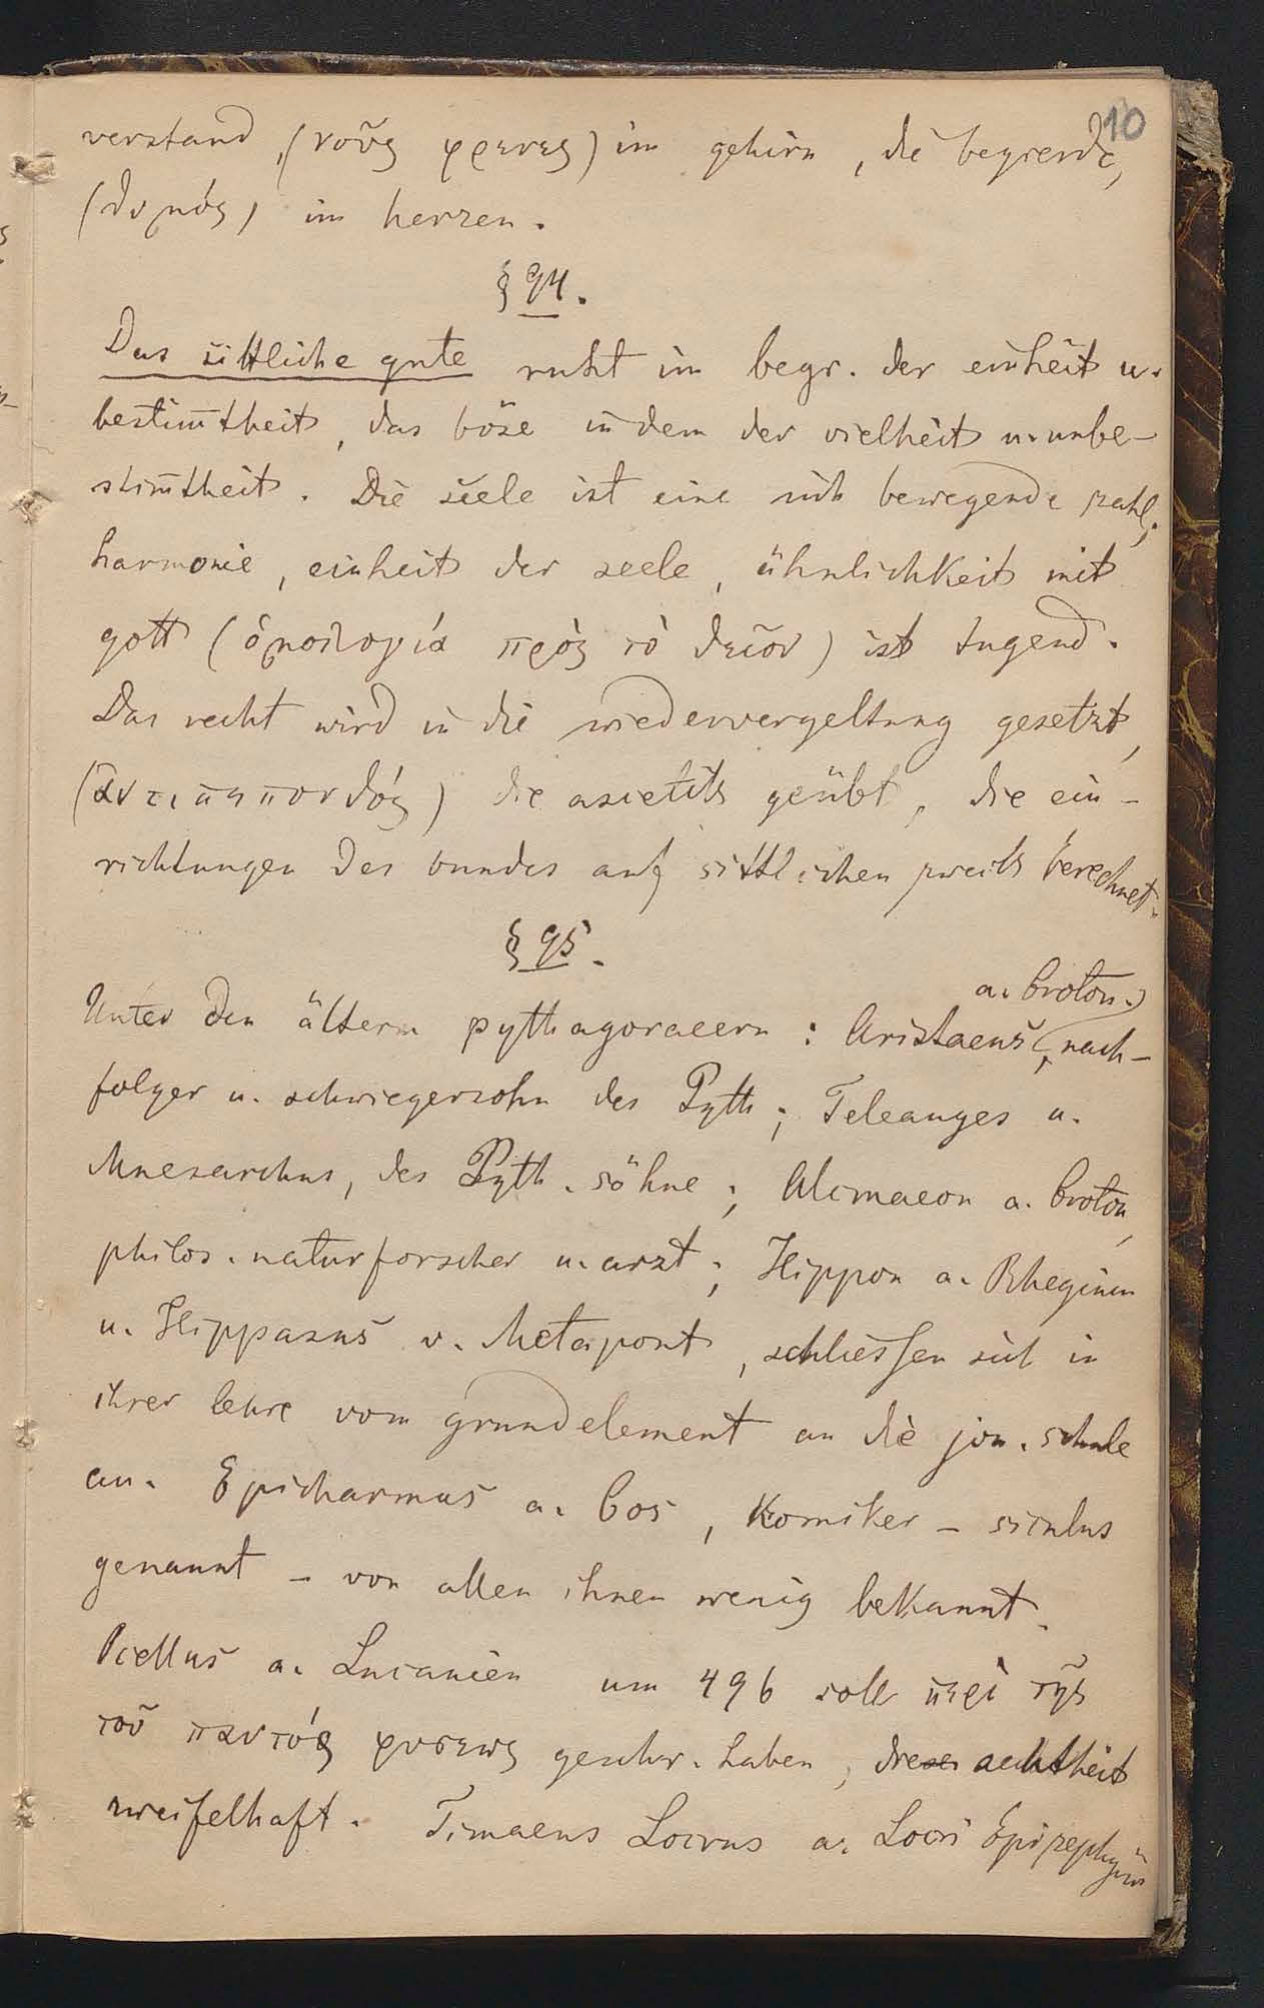 10
verstand, (νοῦς φρενες) im gehirn, die begierde,
(θυμός) im herzen.
§ 94.
Das sittliche gute ruht im begr. der einheit u.
bestim̄theit, das böse in dem der vielheit u. unbe-
stim̄theit. Die seele ist eine sich bewegende zahl;
harmonie, einheit der seele, ähnlichkeit mit
gott (ὁμοιλογία πρὸς τὸ θεῖον) ist tugend.
Das recht wird in die wiedervergeltung gesetzt,
(ἀντιπεπονθός) die ascetik geübt, die ein-
richtungen des bundes auf sittlichen zweck berechnet.
§ 95.
a. Croton.)
Unter den ältern pythagoraeern: Aristaeus (, nach-
folger u. schwiegersohn des Pyth; Teleauges u.
Mnesarchus, des Pyth. söhne; Alcmaeon a. Croton,
philos. naturforscher u. arzt; Hippon a. Rhegium
u. Hippasus v. Metapont, schliessen sich in
ihrer lehre vom grundelement an die jon. schule
an. Epicharmus a. Cos, Komiker – siculus
genannt – von allen ihnen wenig bekannt.
Ocellus a. Lucanien um 496 soll περὶ τῆς
τοῦ παντός φυσεως geschr. haben, dieser aechtheit
zweifelhaft. Timaeus Locrus a. Locri Epizephyrii